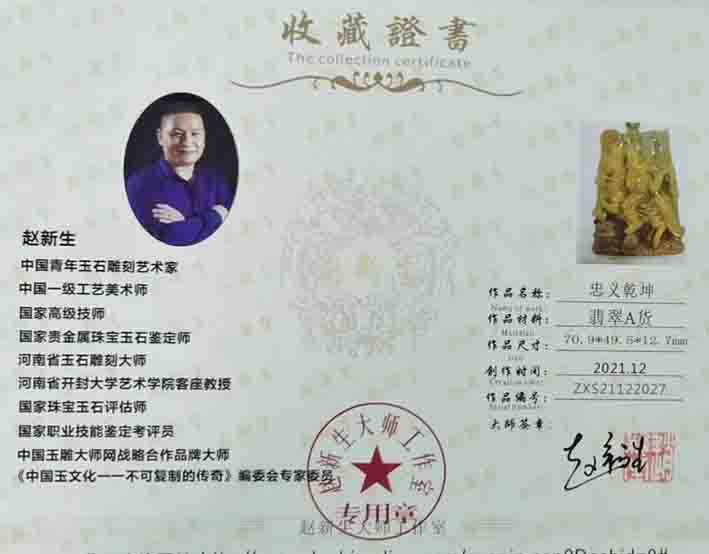 收藏證書
The collection certificate
赵新生
中国青年玉石雕刻艺术家
中国一级工艺美术师
国家高级技师
国家贵金属珠宝玉石鉴定师
河南省玉石雕刻大师
河南省开封大学艺术学院客座教授
国家珠宝玉石评估师
国家职业技能鉴定考评员
中国玉雕大师网战略合作品牌大师
《中国玉文化一一不可复制的传奇》编委会专家委员
作品名称: 忠义乾坤
Name of work
作品材料: 翡翠A货
Material
作品尺寸: 70.9*49.5*12.7mm
size
创作时间: 2021.12
Creation time
作品编号: ZXS21122027
大师签章:
赵新生
赵新生大师工作室
专用章
赵新生大师工作室